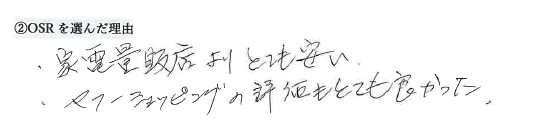 ②OSRを選んだ理由
・家電量販店よりとても安い。
・ヤフーショッピングの評価もとても良かった。